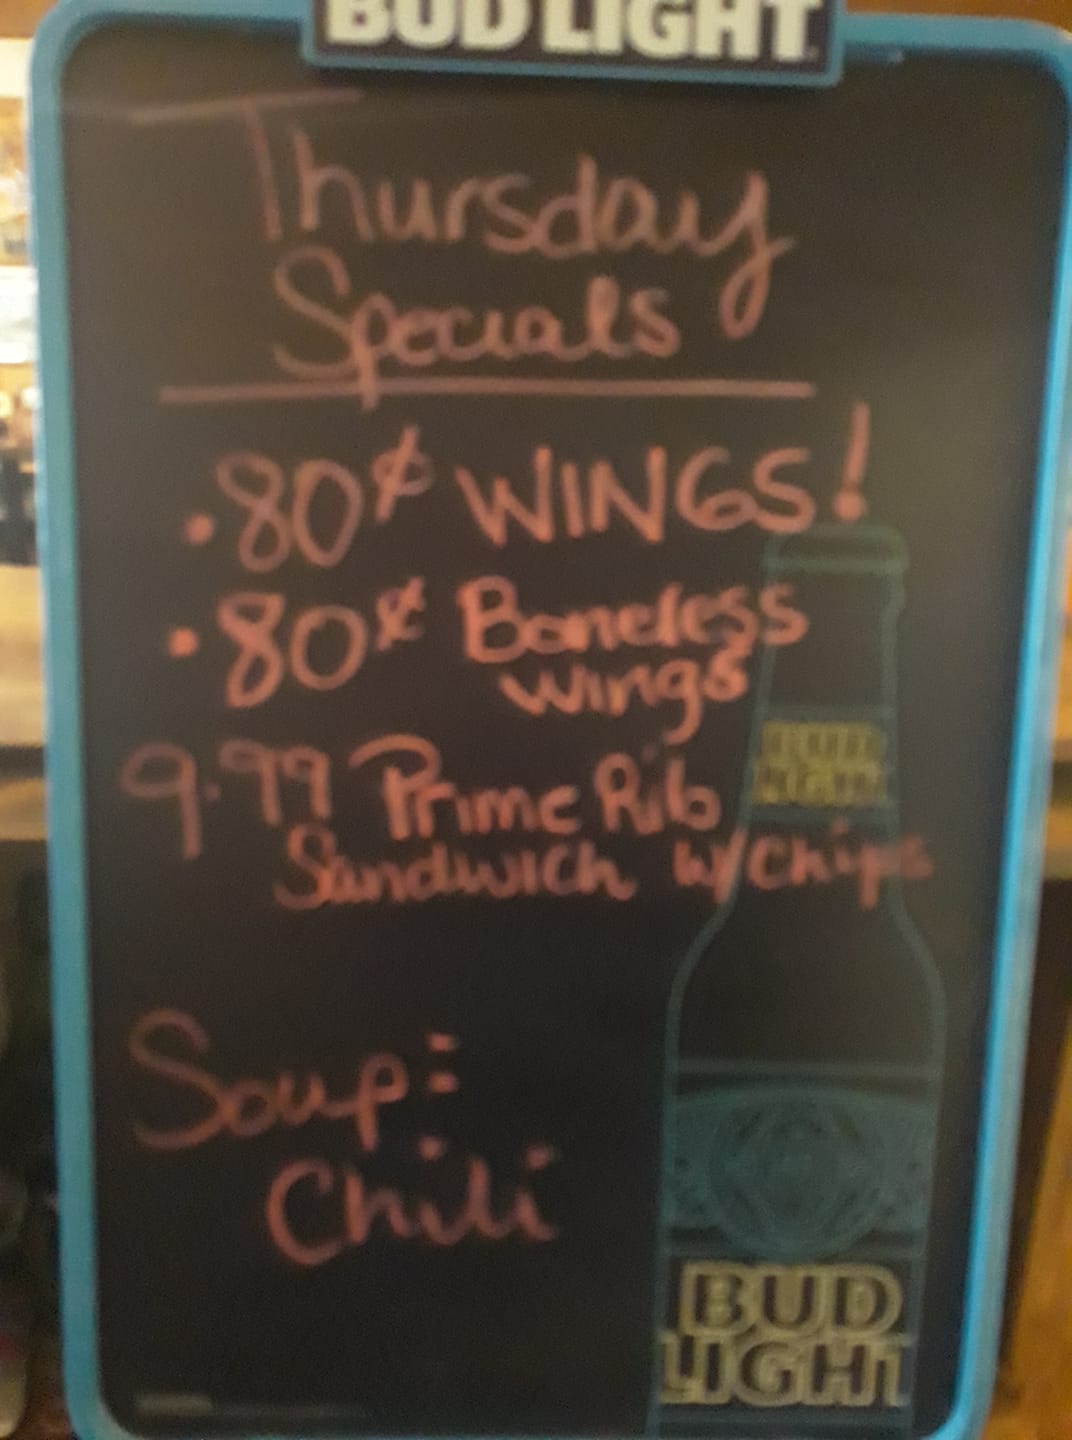 BUD LIGHT
Thursday
Specials
·80¢ WINGS!
·80¢ Boneless
wings
9.99 Prime Rib
Sandwich w/chips
Soup:
Chili
BUD
LIGHT
BUD
LIGHT